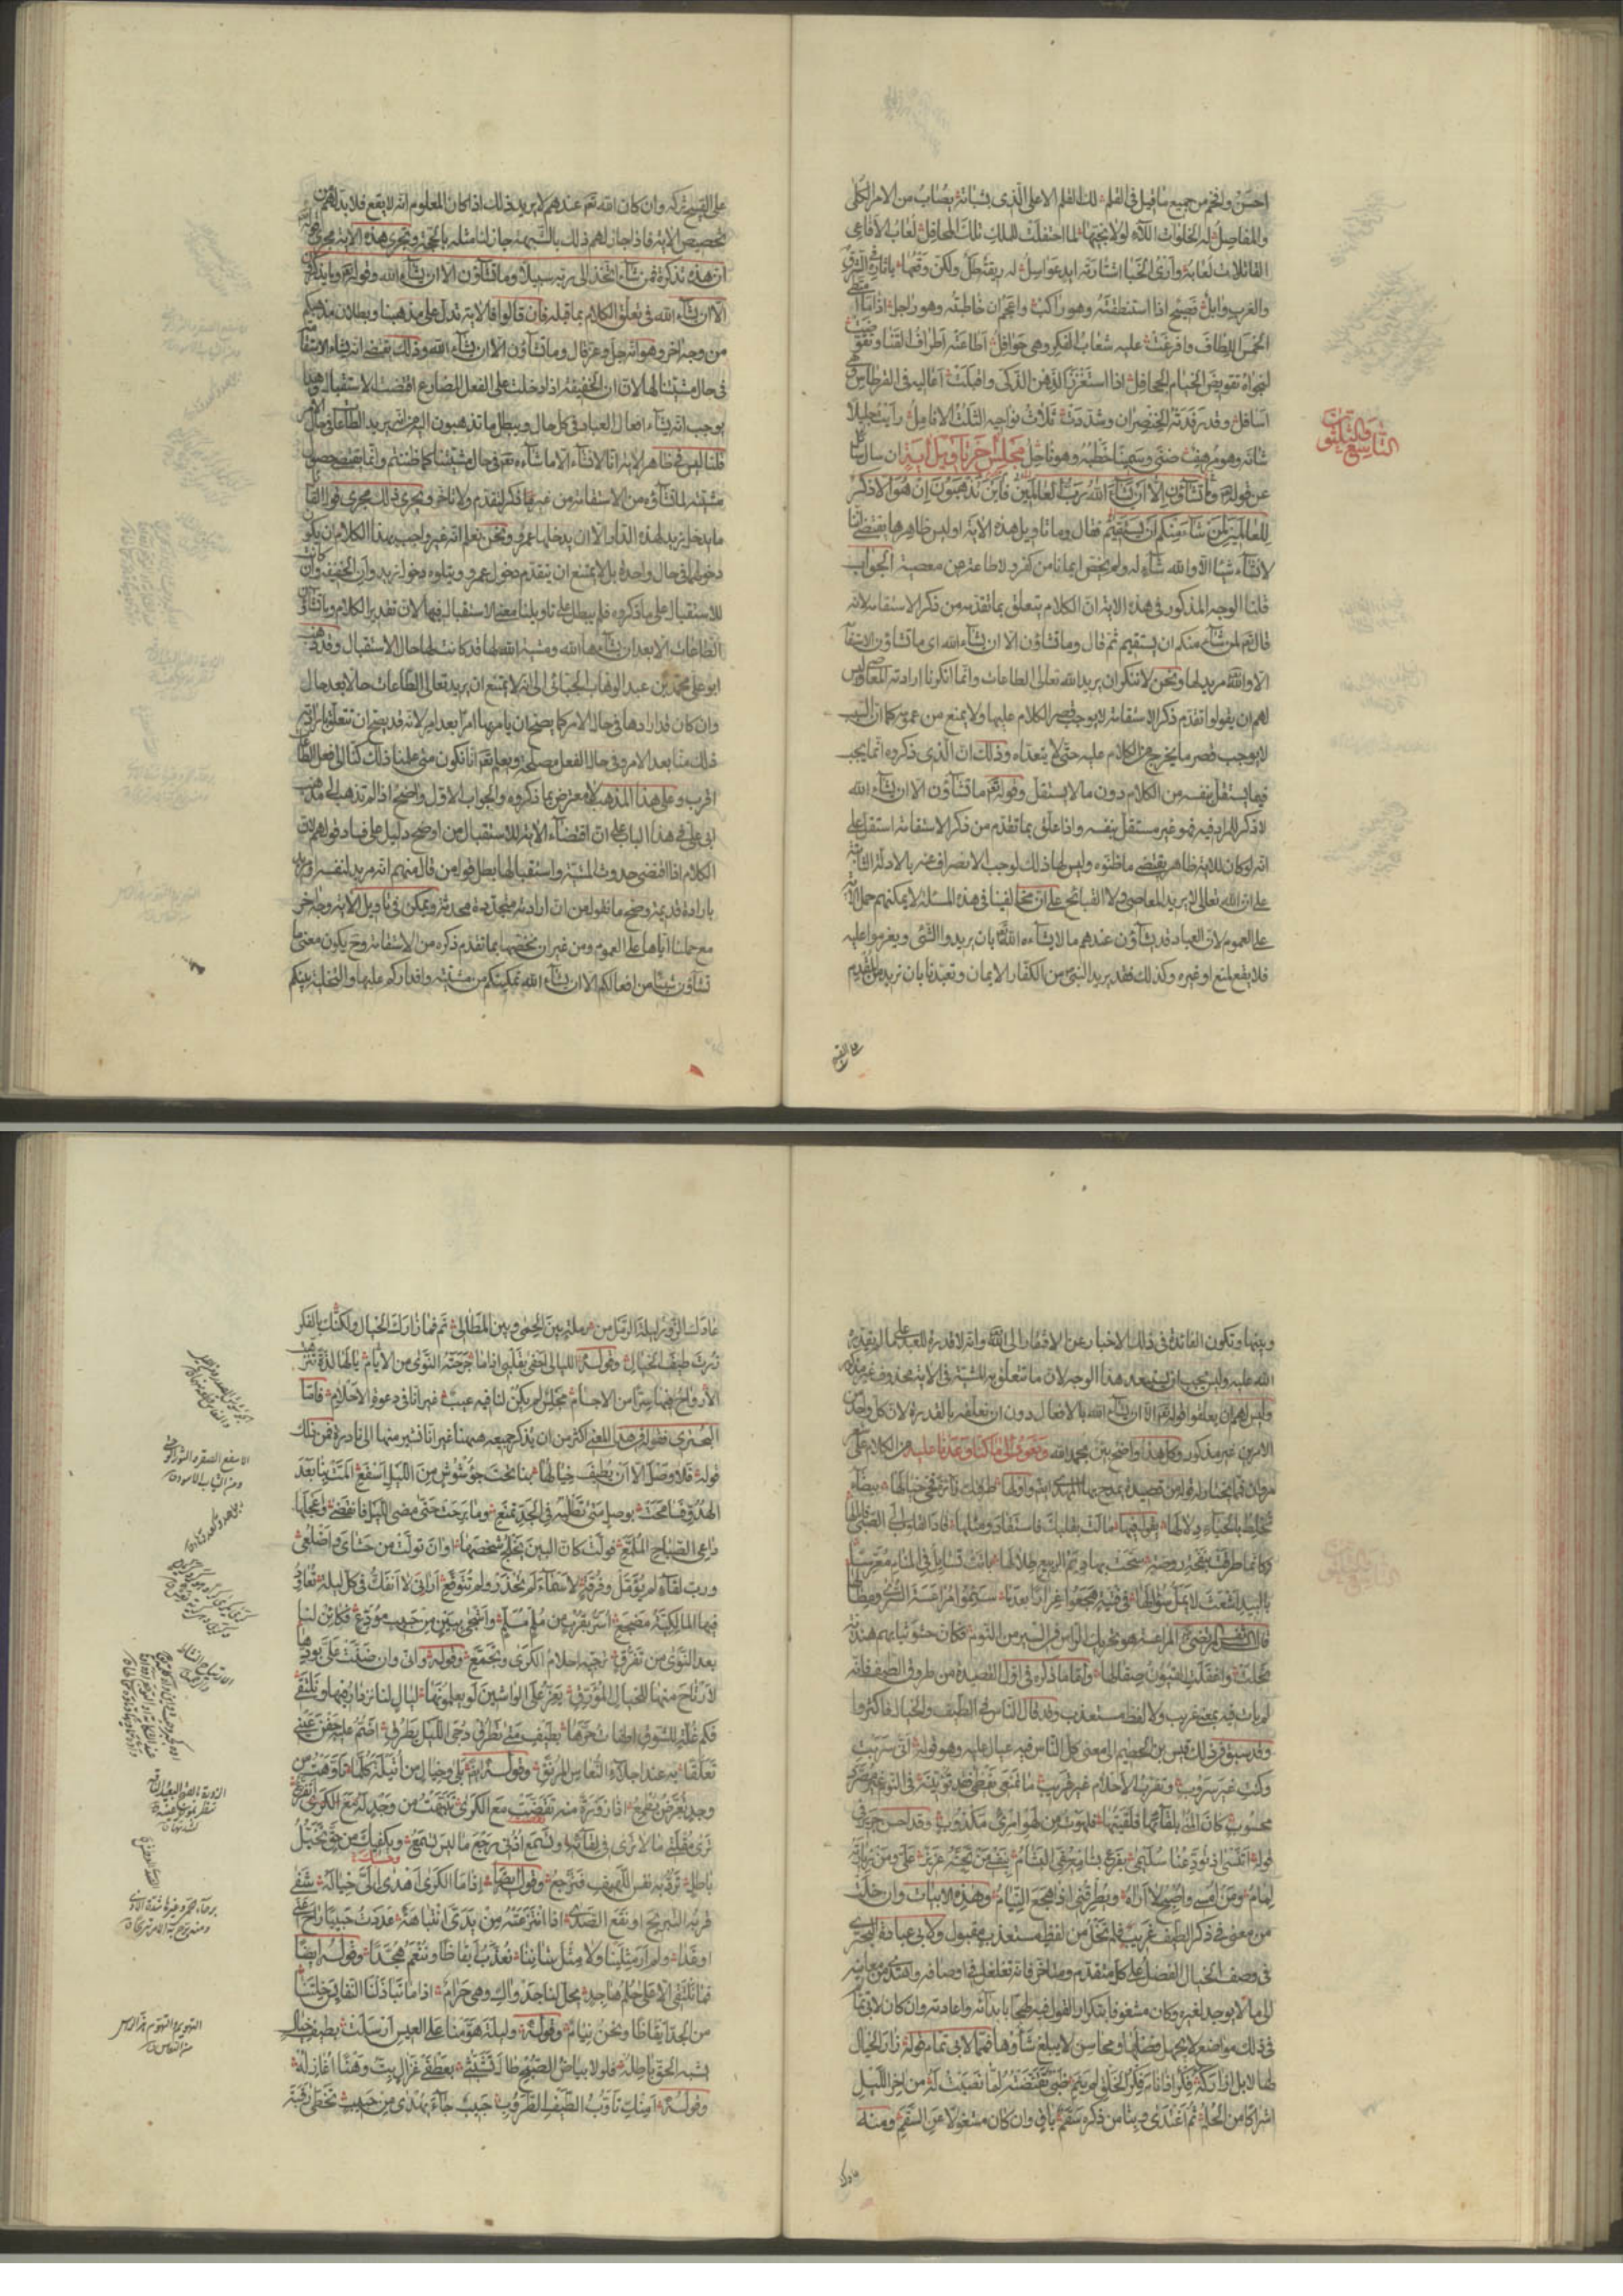 احسن وافخم من جميع ما قيل في القلم لك القلم الاعلى الذي بشباته يصاب من الامر الكلى
والمفاصل له الخلوات اللآء لولا نجيها لما احتفلت للملك تلك المحافل لعاب الافاعي
القاتلات لعابه وارى الجنا اشتارته ايد عواسل له ريقة طل ولكن وقعها باثاره في الشرق
والغرب وابل فصيح اذا استنطقته وهو راكب واعجم ان خاطبته وهو راجل اذا ما امتطى
الخمس اللطاف وافرغت عليه شعاب الفكر وهي حوافل اطاعته اطراف القنا وتقوضت
لنجواه تقويض الخيام الجحافل اذا استغزر الذهن الذكى واقبلت اعاليه في القرطاس وهي
اسافل وقد رفدته الخنصران وشددت ثلاث نواحيه الثلث الانامل رايت جليلا
شانه وهو مرهف ضنى وسمينا خطبه وهو ناحل مجلس اخر تاويل اية ان سال سائل
التاسع والثلثون
عن قوله تعالى وما تشاؤن الا ان يشاء الله رب العالمين فاين تذهبون ان هو الا ذكر
للعالمين لمن شاء منكم ان يستقيم فقال وما تاويل هذه الاية اوليس ظاهرها يقتضى انا
لا نشاء شيئا الا والله شاء له ولم يخص ايمانا من كفر ولا طاعة من معصية الجواب
قلنا الوجه المذكور في هذه الاية ان الكلام يتعلق بما تقدمه من ذكر الاستقامة لانه
قال تعم لمن شاء منكم ان يستقيم ثم قال وما تشاؤن الا ان يشاء الله اى ما تشاؤن الاستقامة
الا والله مريد لها ونحن لا ننكر ان يريد الله تعالى الطاعات وانما انكرنا ارادته المعاصى وليس
لهم ان يقولوا تقدم ذكر الاستقامة لا يوجب قصر الكلام عليها ولا يمنع من عمومه كما ان السبب
لا يوجب قصر ما يخرج من الكلام عليه حتى لا يتعداه وذلك ان الذى ذكروه انما يجب
فيما يستقل بنفسه من الكلام دون ما لا يستقل وقوله تعم ما تشاؤن الا ان يشاء الله
لا ذكر للمراد فيه فهو غير مستقل بنفسه واذا علق بما تقدم من ذكر الاستقامة استقل على
انه لو كان للاية ظاهر يقتضى ما ظنوه وليس لها ذلك لوجب الانصراف عنه بالادلة الثابتة
على ان الله تعالى لا يريد المعاصى ولا القبائح على ان مخالفينا في هذه المسئلة لا يمكنهم حمل الاية
على العموم لان العباد قد يشاؤن عندهم ما لا يشاءه الله بان يريدوا الشئ ويعزموا عليه
فلا يقع لمنع او غيره وكذلك فقد يريد النبي من الكفار الايمان وتعبدنا بان نريد من المقدم
على القبيح تركه وان كان الله تعم عندهم لا يريد ذلك اذا كان المعلوم انه لا يقع فلا بد لهم من
تخصيص الاية فاذا جاز لهم ذلك بالشبهة جاز لنا مثله بالحجة وتجرى هذه الاية مجرى قوله
ان هذه تذكرة فمن شاء اتخذ الى ربه سبيلا وما تشاؤن الا ان يشاء الله وقوله وما يذكرون
الا ان يشاء الله في تعلق الكلام بما قبله فان قالوا فالاية تدل على مذهبنا وبطلان مذهبكم
من وجه اخر وهو انه جل وعز قال وما تشاؤن الا ان يشاء الله وذلك يقتضى انه يشاء الاستقامة
في حال مشيتنا لها لان ان الخفيفة اذا دخلت على الفعل المضارع اقتضت الاستقبال وهذا
يوجب انه يشاء افعال العباد في كل حال ويبطل ما تذهبون اليه من انه يريد الطاعات في حال الامر
قلنا ليس في ظاهر الاية انا لا نشاء الا ما شاءه تعم في حال مشيتنا كما ظننتم وانما يقتضى حصول
مشيته لما نشاؤه من الاستقامة من غير ذكر لتقدم ولا تاخر ويجرى ذلك مجرى قول القائل
ما يدخل زيد لهذه الدار الا ان يدخلها عمرو ونحن نعلم انه غير واجب بهذا الكلام ان يكون
دخولهما في حال واحدة بل لا يمتنع ان يتقدم دخول عمرو ويتلوه دخول زيد وان الخفيفة وان كانت
للاستقبال على ما ذكروه فلم يبطل على تاويلنا معنى الاستقبال فيها لان تقدير الكلام وما تشاؤن
الطاعات الا بعد ان يشاءها الله ومشيته الله لها قد كانت لها حال الاستقبال وقد ذهب
ابو على محمد بن عبد الوهاب الجبائى الى انه لا يمتنع ان يريد تعالى الطاعات حالا بعد حال
وان كان قد ارادها في حال الامر كما يصح ان يامر بها امرا بعد امر لانه قد يصح ان تتعلق بارادته
ذلك منا بعد الامر وفي حال الفعل مصلحة ويعلم تعم انا نكون متى علمنا ذلك كنا الى فعل الطاعة
اقرب وعلى هذا المذهب لا يعترض بما ذكروه والجواب الاول واضح اذا لم نذهب الى مذهب
ابي على في هذا الباب على ان اقتضاء الاية للاستقبال من اوضح دليل على فساد قولهم لان
الكلام اذا اقتضى حدوث المشية واستقبالها بطل قول من قال منهم انه مريد لنفسه او مريد
بارادة قديمة وصح ما نقوله من ان ارادته متجددة محدثة ويمكن في تاويل الاية وجه اخر
مع حملنا اياها على العموم ومن غير ان نخصها بما تقدم ذكره من الاستقامة وح يكون معنى ما
تشاؤن شيئا من افعالكم الا ان يشاء الله تمكينكم من مشيته واقداركم عليها والتخلية بينكم
على القبيح
وبينها وتكون الفائدة في ذلك الاخبار عن الافتقار الى الله وانه لا قدرة للعبد على ما لم يقدره
الله عليه وليس يجب ان يستبعد هذا الوجه لان ما تتعلق به المشية في الاية محذوف غير مذكور
وليس لهم ان يعلقوا قوله تعم الا ان يشاء الله بالافعال دون ان نعلقه بالقدرة لان كل واحد من
الامرين غير مذكور وكل هذا واضح بين بحمد الله ونعود الى ما كنا وعدنا عليه من الكلام على
شعر مروان فمما يختار له قوله من قصيدة يمدح بها المهدى اولها طرقتك زائرة فحى خيالها بيضاء
تخلط بالحياء دلالها يقول فيها مالت بقلبك فاستقاد ومثلها قاد القلوب الى الصبى فامالها
وكانما طرقت بنفحة روضة سحت بها ديم الربيع ظلالها باتت تسائل في المنام معرسا
بالبيد اشعث لا يمل سؤالها في فتية هجعوا غرارا بعدما سئموا مراعشة السرى ومطالها
قال الشريف المرتضى المراعشة هو تحريك الراس في السير من النوم فكان حشو ثيابهم هندية
نحلت واغفلت العيون صقالها واما ما ذكره في اول القصيدة من طروق الطيف فانه
لم يات فيه بمعنى غريب ولا لفظ مستعذب وقد قال الناس في الطيف والخيال فاكثروا
وقد سبق في ذلك قيس بن الخطيم الى معنى كل الناس فيه عيال عليه وهو قوله انى سربت
وكنت غير سروب وتقرب الاحلام غير قريب ما تمنعى يقظى فقد تؤتينه في النوم غير مصرد
محسوب كان المنى بلقائها فلقيتها فلهوت من لهو امرئ مكذوب وقد احسن جرير في
قوله اتنسى اذ تودعنا سليمى بفرع بشامة سقى البشام بنفسى من تجنبه عزيز على ومن زيارته
لمام ومن امسى واصبح لا اراه ويطرقنى اذا هجع النيام وهذه الابيات وان خلت
من معنى في ذكر الطيف غريب فلم تخل من لفظ مستعذب مقبول ولابى عبادة البحترى
في وصف الخيال الفضل على كل متقدم ومتاخر فانه تغلغل في اوصافه واهتدى من معانيه
الى ما لا يوجد لغيره وكان مشغوفا بتكرار القول فيه لهجا بابدائه واعادته وان كان لابى تمام
في ذلك مواضع لا يجهل فضلها ومحاسن لا يبلغ شاوها فمما لابى تمام قوله زار الخيال
لها لا بل ازاركه فكر اذا نام فكر الخلق لم ينم ظبى تقنصته لما نصبت له من اخر الليل
اشراكا من الحلم ثم اغتدى وبنا من ذكره سقم باق وان كان مشغولا عن السقم ومنه
عادك الزور ليلة الرمل من رملة بين الحمى وبين المطالى ثم فما زارك الخيال ولكنك بالفكر
زرت طيف الخيال وقوله الليالى احفى بقلبى اذا ما جرحته النوى من الايام يا لها لذة تنزهت
الارواح فيها سرا من الاجسام مجلس لم يكن لنا فيه عيب غير انا في دعوة الاحلام فاما
البحترى فقوله في هذا المعنى اكثر من ان يذكر جميعه ههنا غير انا نشير منها الى نادره فمن ذلك
قوله فلا وصل الا ان يطيف خيالها بنا تحت جؤشوش من الليل اسفع المت بنا بعد
الهدو فسامحت بوصل متى نطلبه في الجد تمنع وما برحت حتى مضى الليل فانقضى واعجلها
داعى الصباح الملمع فولت كان البين يخلج شخصها اوان تولت من حشاى واضلعى
ورب لقاء لم يؤمل وفرقة لاسماء لم تحذر ولم تتوقع ارانى لا انفك في كل ليلة تعاود
فيها المالكية مضجعى اسر بقرب من ملم مسلم واشجى ببين من حبيب مودع فكائن لنا
بعد النوى من تفرق تزجيه احلام الكرى وتجمع وقوله وانى وان ضنت على بودها
لارتاح منها للخيال المؤرق يعز على الواشين لو يعلمونها ليال لنا نزدار فيها ونلتقى
فكم غلة للشوق اطفات حرها بطيف متى يطرق دجى الليل يطرق اضم عليه جفن عينى
تعلقا به عند اجلاء النعاس المرنق وقوله ايضا بلى وخيال من اثيلة كلما تاوهت من
وجد تعرض يطمع اذا زورة منه تقضت مع الكرى تنبهت من وجد له مع الكرى اتفزع
ترى مقلتى ما لا ترى في لقائه وتسمع اذنى رجع ما ليس تسمع ويكفيك من حق تخيل
باطل ترد به نفس اللهيف فترجع وقوله ايضا اذا ما الكرى اهدى الى خياله شفى
قربه التبريح او نقع الصدى اذا انتزعته من يدى انتباهة عددت حبيبا راح منى
او غدا ولم ار مثلينا ولا مثل شاننا نعذب ايقاظا وننعم هجدا وقوله ايضا
فما نلتقى الا على حلم هاجد يحل لنا جدواك وهى حرام اذا ما تباذلنا النفائس خلتنا
من الجد ايقاظا ونحن نيام وقوله وليلة هومنا على العيس ارسلت بطيف خيال
يشبه الحق باطله فلولا بياض الصبح طال تشبثى بعطفى غزال بت وهنا اغازله
وقوله امنك تاوب الطيف الطروب حبيب جاء يهدى من حبيب تخطى رقبة
عادك